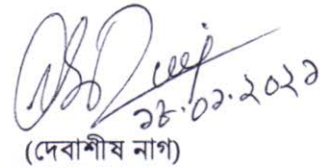 ১৮.০১.২০২১
(দেবাশীষ নাগ)